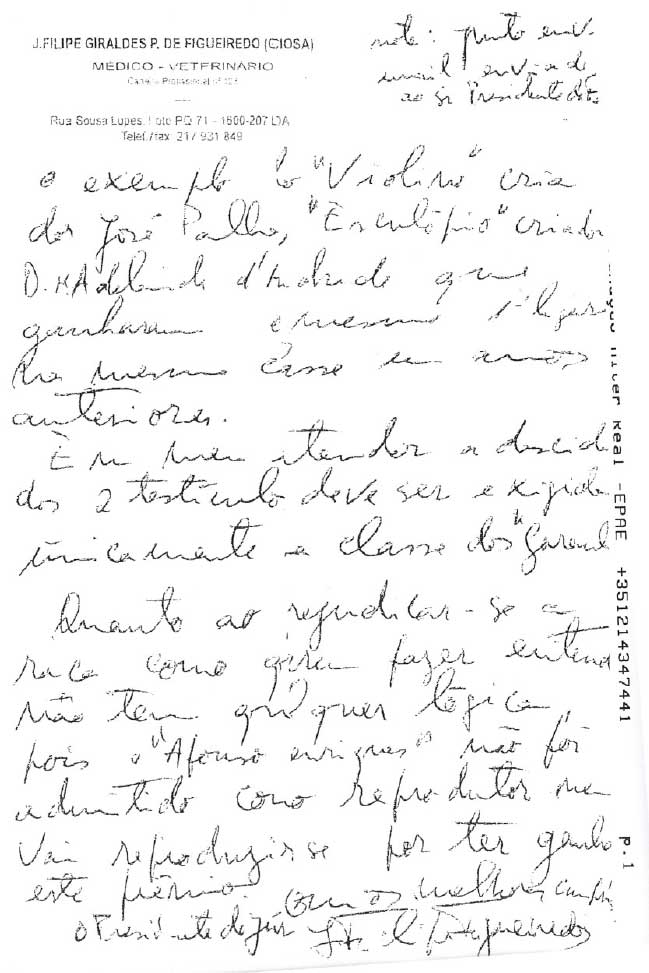 J.FILIPE GIRALDES P. DE FIGUEIREDO (CIOSA)
MÉDICO - VETERINÁRIO
Rua Sousa Lopes, Lote PQ 71 - 1600-207
Telef./fax 217 931 849
note: junto
ao Sr Presidente
o exemplo "Violino" cria
dor José Palha, "Esculápio" criador
D. d'Andrade que
ganharam o mesmo lugar
na mesma em anos
anteriores.
É meu entender a descida
dos 2 testículo deve ser exigida
únicamente a classe dos "Garanh
Quanto ao a
raça como fazer entend
não tem qualquer lógica
pois o "Afonso enriques" não foi
admitido como reprodutor nem
vai reproduzirse por ter ganho
este prémio. Com os melhores
o Presidente do Júri
Real -EPAE +351214347441 P.1